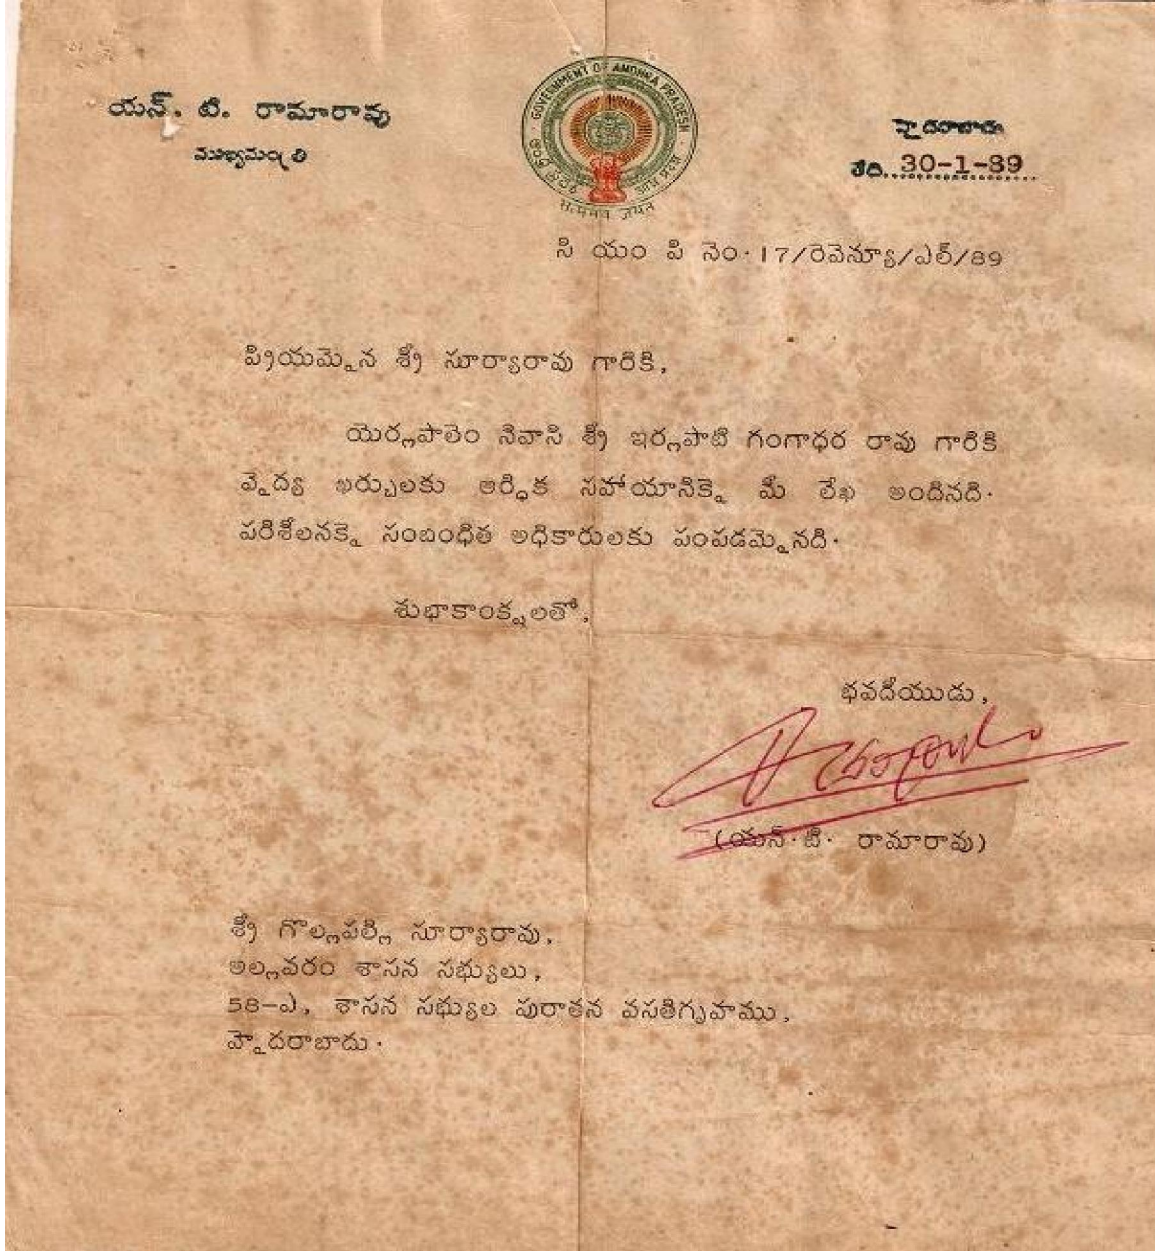 యన్. టి. రామారావు
ముఖ్యమంత్రి
GOVERNMENT OF ANDHRA PRADESH
హైదరాబాదు
తేది. 30-1-89
సి యం పి నెం. 17/రెవెన్యూ/ఎల్/89
ప్రియమైన శ్రీ సూర్యారావు గారికి,
యెర్లపాలెం నివాసి శ్రీ ఇర్లపాటి గంగాధర రావు గారికి
వైద్య ఖర్చులకు ఆర్థిక సహాయానికై మీ లేఖ అందినది.
పరిశీలనకై సంబంధిత అధికారులకు పంపడమైనది.
శుభాకాంక్షలతో,
భవదీయుడు,
(యన్.టి. రామారావు)
శ్రీ గొల్లపల్లి సూర్యారావు,
అల్లవరం శాసన సభ్యులు,
58-ఎ, శాసన సభ్యుల పురాతన వసతిగృహము,
హైదరాబాదు.